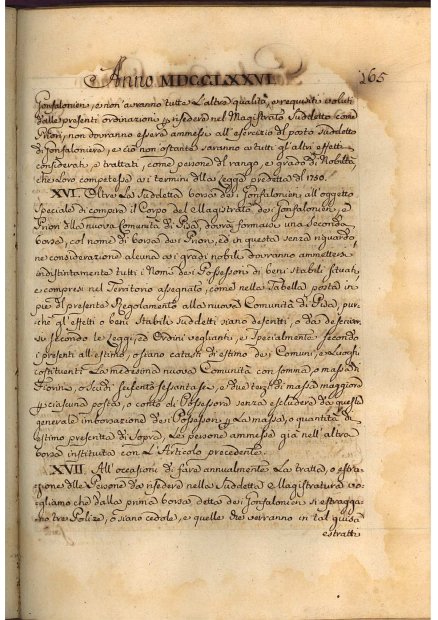 Anno MDCCLXXVI. 165
Gonfalonieri, e non avranno tutte l'altre qualità, e requisiti voluti
dalle presenti ordinazioni p risedere nel Magistrato suddetto come
Priori, non dovranno essere ammessi all'esercizio del posto suddetto
di Gonfaloniere, e ciò non ostante saranno a tutti gl'altri effetti
considerati, e trattati, come persone del rango, e grado di Nobiltà,
che loro competesse a i termini della Legge predetta del 1750.
XVI. Oltre la suddetta borsa dei Gonfalonieri, all'oggetto
speciale di compire il Corpo del Magistrato dei Gonfalonieri, e
Priori della nuova Comunità di Pisa, dovrà formarsi una seconda
borsa, col nome di borsa dei Priori, ed in questa senza riguardo,
ne considerazione alcuna ai gradi nobili dovranno ammettersi
indistintamente tutti i Nomi dei Possessori di beni stabili situati,
e compresi nel Territorio assegnato, come nella Tabella posta in
piè del presente Regolamento alla nuova Comunità di Pisa, pur-
chè gl'effetti o beni stabili suddetti siano descritti, o da descriver-
si secondo le Leggi, ed Ordini veglianti, e specialmente secondo
i presenti all'estimo, o siano catasti di estimo dei Comuni, e Luoghi
costituenti la medesima nuova Comunità con somma, o massa di
Fiorini, o scudi seicento sessanta sei, e due terzi di massa maggiore
p ciascuna posta, o conto di Possessore senza escludere da questa
generale imborsazione dei Possessori p la massa, o quantità di
estimo presentta di sopra, le persone ammesse già nell'altra
borsa instituita con l'Articolo precedente.
XVII. All'occasione di fare annualmente la tratta, o estra-
zione delle Persone da risedere nella suddetta Magistratura vo-
gliamo che dalla prima borsa detta dei Gonfalonieri si estragga-
no tre Polize, o siano cedole, e quelle che verranno in tal guisa
estratte